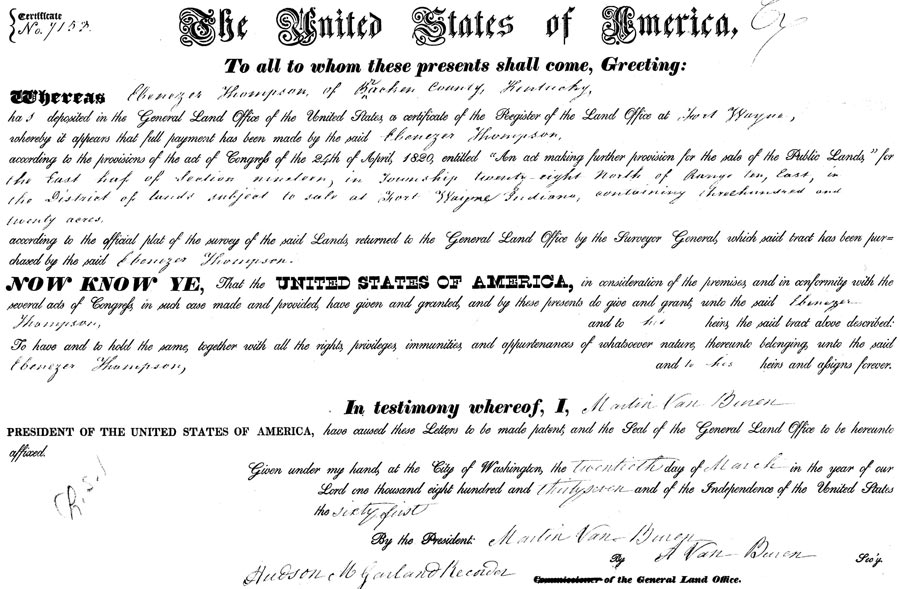 Certificate
No. 7153.
The United States of America,
To all to whom these presents shall come, Greeting:
Whereas Ebenezer Thompson, of Bracken County, Kentucky,
has deposited in the General Land Office of the United States, a certificate of the Register of the Land Office at Fort Wayne,
whereby it appears that full payment has been made by the said Ebenezer Thompson,
according to the provisions of the act of Congress of the 24th of April, 1820, entitled "An act making further provision for the sale of the Public Lands," for
the East haf of Section nineteen, in Township twenty-eight North of Range ten, East, in
the District of lands subject to sale at Fort Wayne Indiana, containing threehundred and
twenty acres.
according to the official plat of the survey of the said Lands, returned to the General Land Office by the Surveyor General, which said tract has been pur=
chased by the said Ebenezer Thompson.
NOW KNOW YE, That the UNITED STATES OF AMERICA, in consideration of the premises, and in conformity with the
several acts of Congress, in such case made and provided, have given and granted, and by these presents do give and grant, unto the said Ebenezer
Thompson, and to his heirs, the said tract above described:
To have and to hold the same, together with all the rights, privileges, immunities, and appurtenances of whatsoever nature, thereunto belonging, unto the said
Ebenezer Thompson, and to his heirs and assigns forever.
In testimony whereof, I, Martin Van Buren
PRESIDENT OF THE UNITED STATES OF AMERICA, have caused these Letters to be made patent, and the Seal of the General Land Office to be hereunto
affixed.
Given under my hand, at the City of Washington, the twentieth day of March in the year of our
Lord one thousand eight hundred and thirtyseven and of the Independence of the United States
the sixty first
By the President: Martin Van Buren
By A Van Buren Sec'y.
Hudson M Garland Recorder Commissioner of the General Land Office.